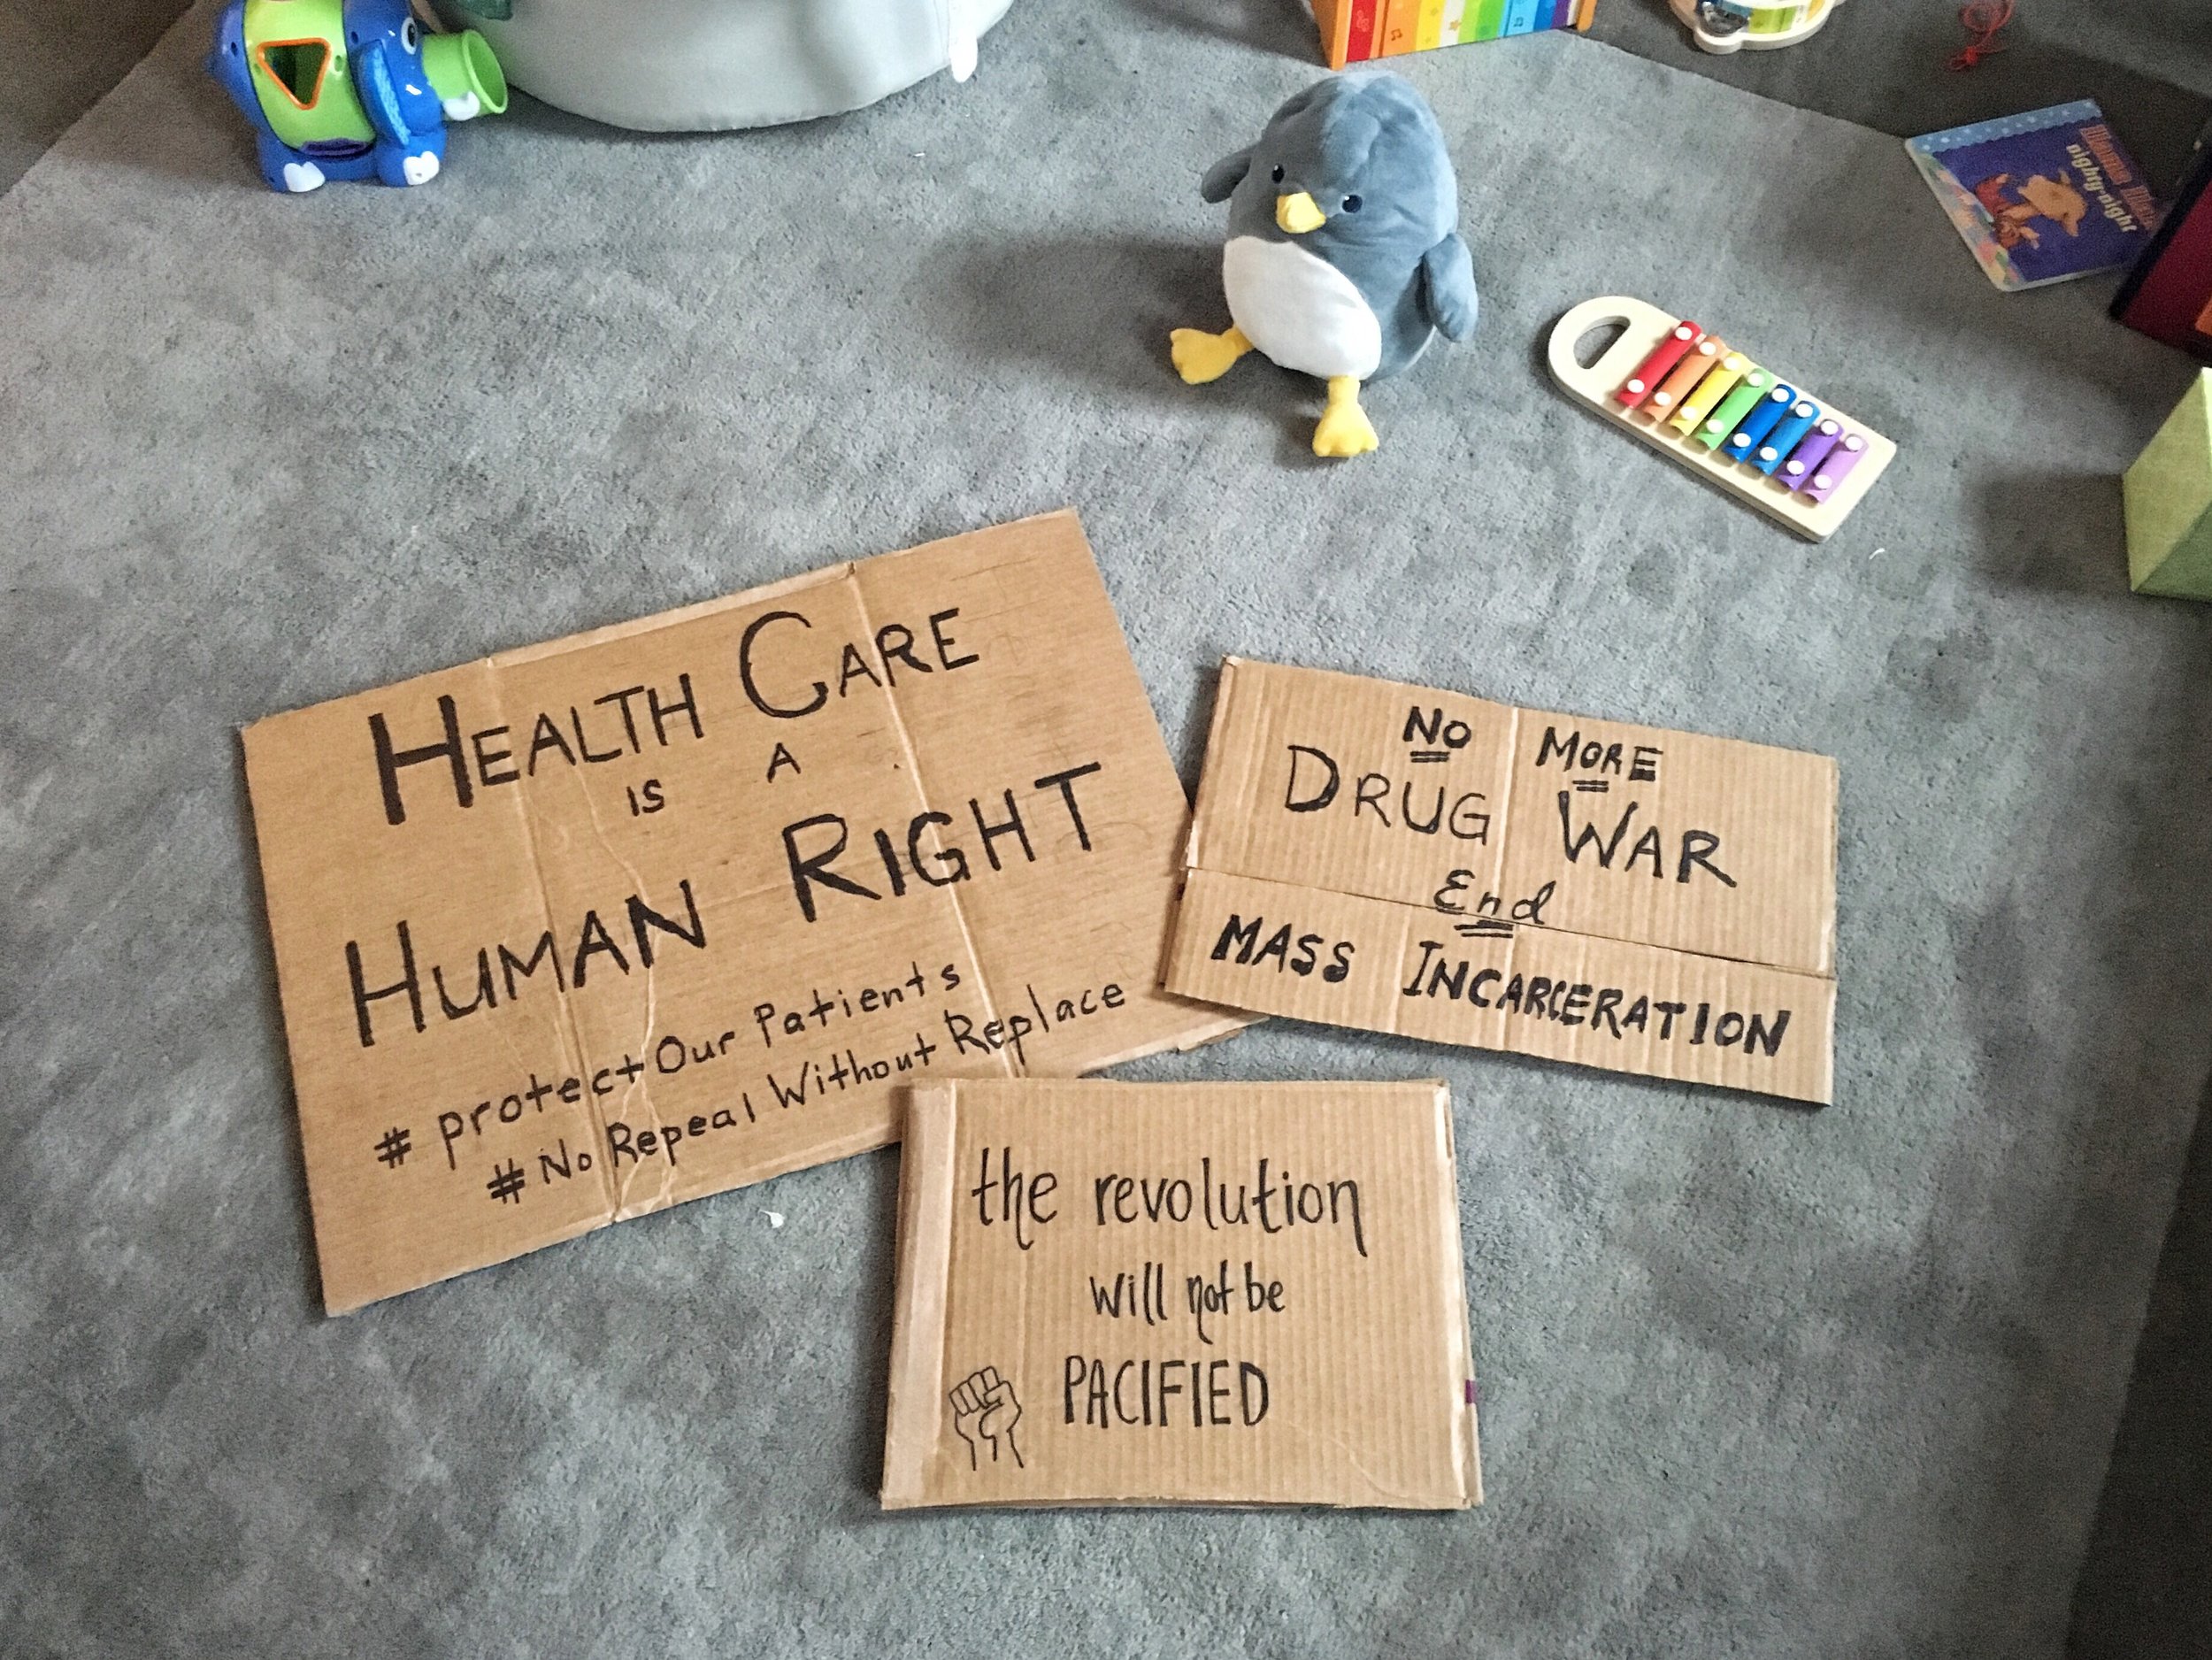 HEALTH CARE
IS A
HUMAN RIGHT
# protect Our Patients
# No Repeal Without Replace
NO MORE
DRUG WAR
End
MASS INCARCERATION
the revolution
will not be
PACIFIED
nighty-night